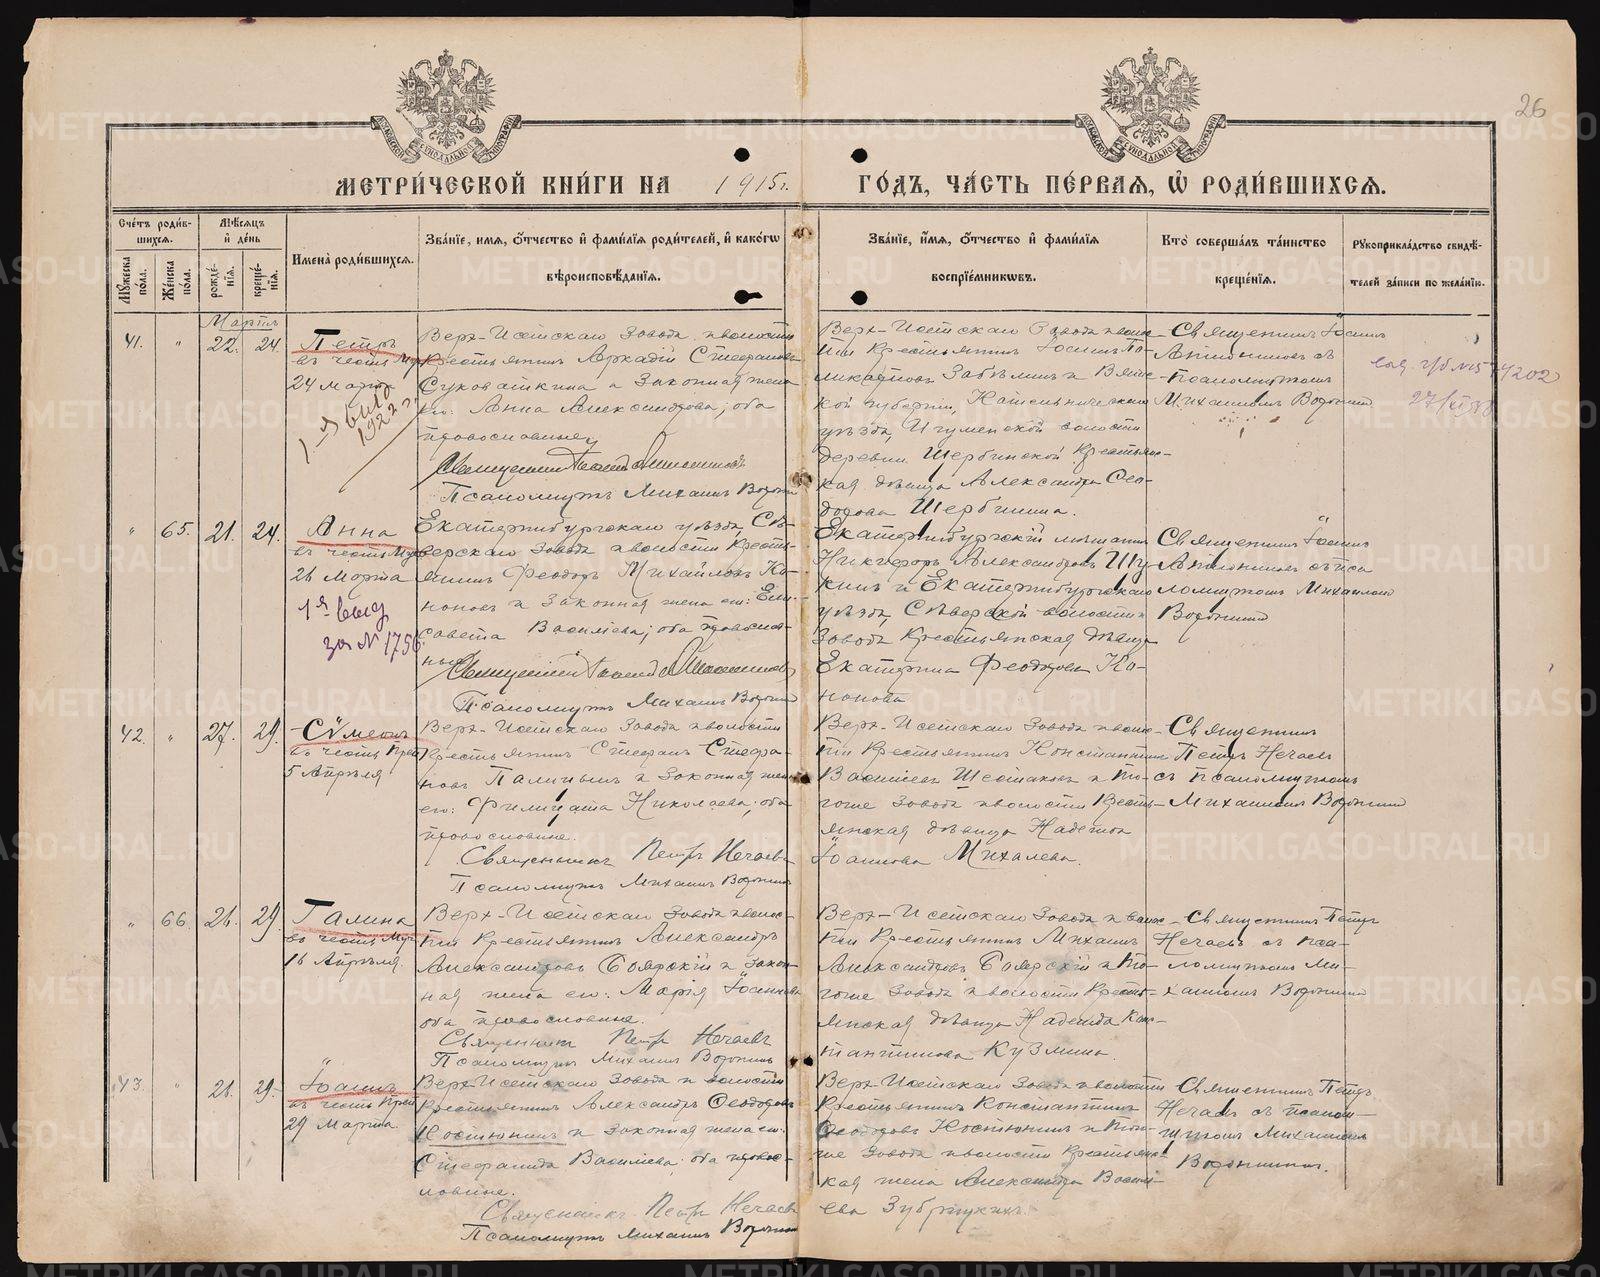 26
МЕТРИ́ЧЕСКОЙ КНИ́ГИ НА 1915г. ГО́ДЪ, ЧА́СТЬ ПЕ́РВАЯ, Ѽ РОДИ́ВШИХСЯ.
Сче́тъ роди́в-
шихся.
Мѣ́сяцъ
и де́нь
Мꙋ́жеска по́ла.
Же́нска по́ла.
рожде́-
нїя.
креще́-
нїя.
Имена̀ роди́вшихся.
Зва́нїе, имя, ѻ́тчество и҆ фами́лїя роди́телей, и҆ како́гѡ
вѣроисповѣ́данїя.
Зва́нїе, и҆́мя, ѻ́тчество и҆ фами́лїя
воспрїе́мниковъ.
Кто̀ соверша́лъ та́инство
креще́нїя.
Рꙋкоприкла́дство свидѣ́-
телей за́писи по жела́нїю.
Мартъ
41. " 22. 24.
Петръ
въ честь Муч
24 марта
1-й выд
1922 г.
Верх-Исетскаго Завода и волости
Крестьянинъ Аркадiй Стефановъ
Суковаткинъ и Законная жена
его: Анна Александрова; оба
православные
Священникъ
Псаломщикъ Михаилъ Воронин
Верх-Исетскаго Завода и волос-
ти Крестьянинъ Iоаннъ По-
ликарповъ Забѣлинъ и Вятс-
кой губернiи, Котельническаго
уѣзда, Игуменской волости
деревни Щербинской Крестьянс-
кая дѣвица Александра Ѳео-
дорова Щербинина.
Священникъ Iоаннъ
съ
псаломщикомъ
Михаиломъ Воронин
" 65. 21. 24.
Анна
въ честь Муч
26 Марта
1я выд
за № 1756
Екатеринбургскаго уѣзда, Сѣ-
верскаго Завода и волости Кресть-
янинъ Ѳеодоръ Михайловъ Ко-
ноновъ и Законная жена его: Ели-
савета Васильева; оба православ-
ные
Священникъ
Псаломщикъ Михаилъ Воронин
Екатеринбургскiй мѣщанинъ
Никифоръ Александровъ Щу-
кинъ и Екатеринбургскаго
уѣзда, Сѣверской волости и
завода Крестьянская дѣвица
Екатерина Ѳеодорова Ко-
нонова
Священникъ Iоаннъ
съ пса
ломщикомъ Михаиломъ
Воронинымъ
42. " 27. 29.
Сѵмеонъ
въ честь Преп
5 Апрѣля
Верх-Исетскаго Завода и волости
Крестьянинъ Стефанъ Стефа-
новъ и Законная жена
его: Филицата Николаева; оба
православные.
Священникъ Петръ Нечаевъ
Псаломщикъ Михаилъ Воронинъ
Верх-Исетскаго Завода и волос-
ти Крестьянинъ Константинъ
Васильевъ Шестаковъ и то-
гоже Завода и волости Кресть-
янская дѣвица Надежда
Iоаннова Михалева.
Священникъ
Петръ Нечаевъ
съ псаломщикомъ
Михаиломъ Воронинымъ
" 66. 26. 29.
Галина
въ честь Муч
16 Апрѣля.
Верх-Исетскаго Завода и волос-
ти Крестьянинъ Александръ
Александровъ Боярскiй и Закон-
ная жена его: Марiя Iоаннова
оба православные.
Священникъ Петръ Нечаевъ
Псаломщикъ Михаилъ Воронинъ
Верх-Исетскаго Завода и волос-
ти Крестьянинъ Михаилъ
Александровъ Боярскiй и то-
гоже Завода и волости Кресть-
янская дѣвица Надежда Конс-
тантинова Кузмина.
Священникъ Петръ
Нечаевъ съ пса-
ломщикомъ Ми-
хаиломъ Воронинымъ
43. " 26. 29.
Iоаннъ
въ честь Преп
29 Марта
Верх-Исетскаго Завода и волости
Крестьянинъ Александръ Ѳеодоровъ
Костюнинъ и Законная жена его:
Стефанида Васильева; оба правос-
лавные.
Священникъ Петръ Нечаевъ
Псаломщикъ Михаилъ Воронин
Верх-Исетскаго Завода и волости
Крестьянинъ Константинъ
Ѳеодоровъ Костюнинъ и того-
же Завода и волости Крестьянс-
кая жена Александра Василь-
ева Зубрицкихъ.
Священникъ Петръ
Нечаевъ съ псалом-
щикомъ Михаиломъ
Воронинымъ.
METRIKI.GASO-URAL.RU